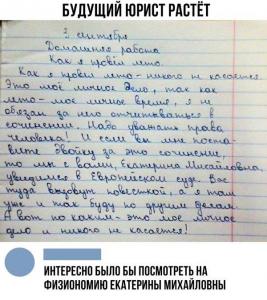 БУДУЩИЙ ЮРИСТ РАСТЁТ
3 сентября
Домашняя работа
Как я провёл лето.
Как я провёл лето - никого не касается.
Это моё личное дело, так как
лето - моё личное время, я не
обязан за него отчитываться в
сочинении. Надо уважать права
человека! И если вы мне поста-
вите двойку за это сочинение,
то мы с вами, Екатерина Михайловна,
увидимся в Европейском суде. Вас
туда вызовут повесткой, а я там
уже и так буду по другим делам.
А вот по каким - это моё личное
дело и никого не касается!
ИНТЕРЕСНО БЫЛО БЫ ПОСМОТРЕТЬ НА
ФИЗИОНОМИЮ ЕКАТЕРИНЫ МИХАЙЛОВНЫ